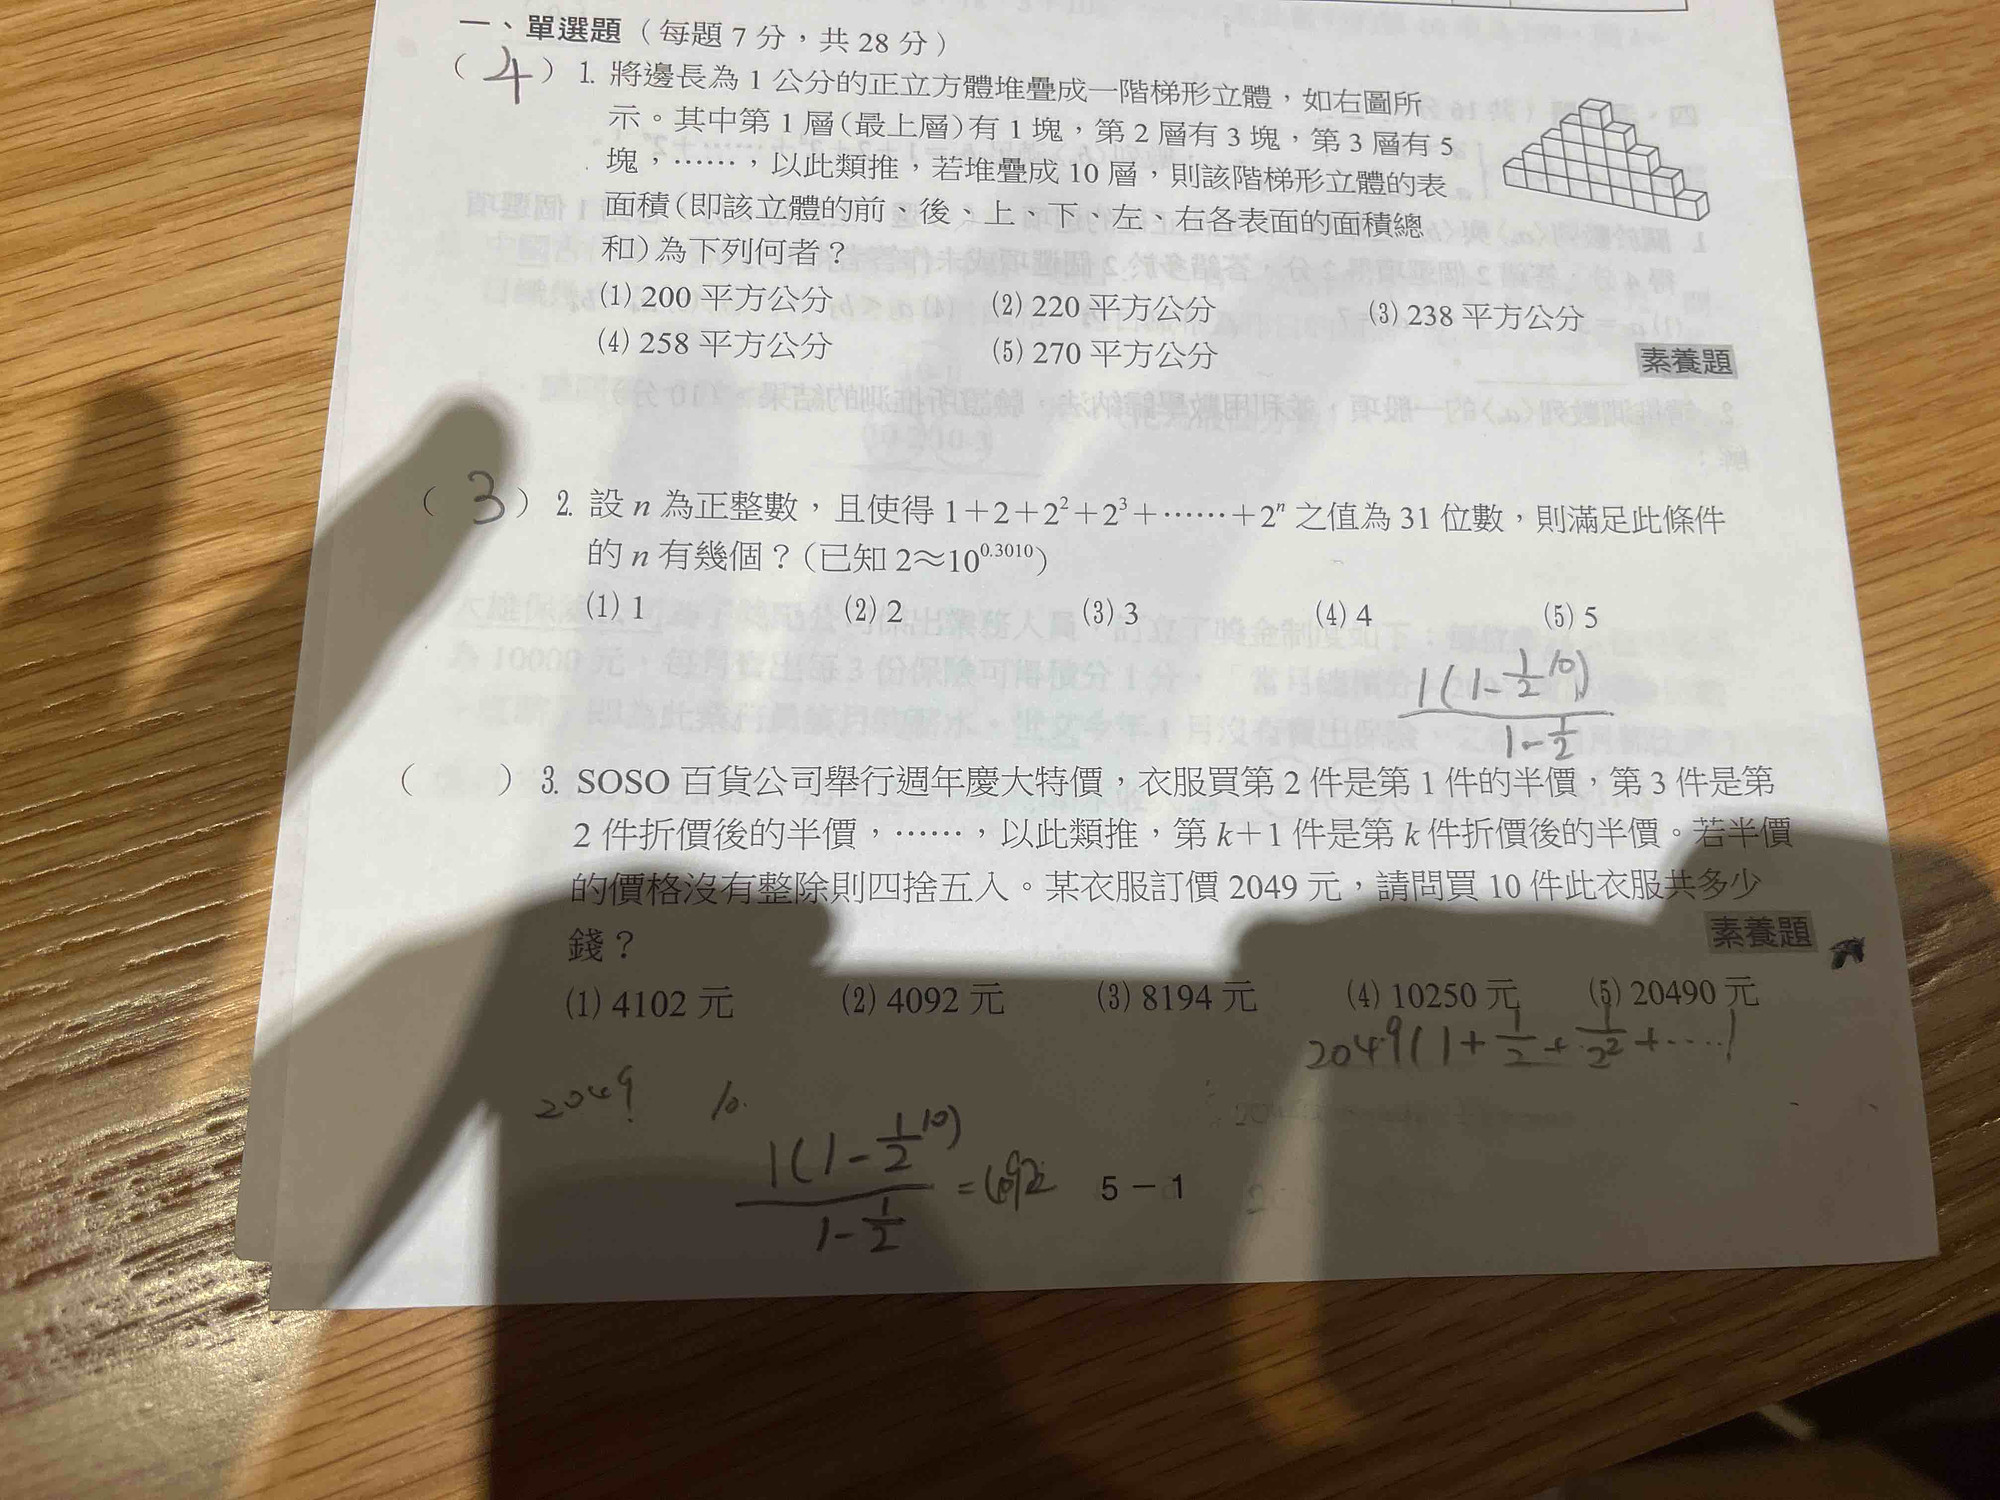 一、單選題（每題 7 分，共 28 分）
（ 4 ）1. 將邊長為 1 公分的正立方體堆疊成一階梯形立體，如右圖所
示。其中第 1 層（最上層）有 1 塊，第 2 層有 3 塊，第 3 層有 5
塊，……，以此類推，若堆疊成 10 層，則該階梯形立體的表
面積（即該立體的前、後、上、下、左、右各表面的面積總
和）為下列何者？
(1) 200 平方公分 (2) 220 平方公分 (3) 238 平方公分
(4) 258 平方公分 (5) 270 平方公分
素養題
（ 3 ）2. 設 n 為正整數，且使得 1＋2＋2²＋2³＋……＋2ⁿ 之值為 31 位數，則滿足此條件
的 n 有幾個？（已知 2≈10^0.3010）
(1) 1 (2) 2 (3) 3 (4) 4 (5) 5
1(1-1/2^10)
1-1/2
（ ）3. SOSO 百貨公司舉行週年慶大特價，衣服買第 2 件是第 1 件的半價，第 3 件是第
2 件折價後的半價，……，以此類推，第 k＋1 件是第 k 件折價後的半價。若半價
的價格沒有整除則四捨五入。某衣服訂價 2049 元，請問買 10 件此衣服共多少
錢？
素養題
(1) 4102 元 (2) 4092 元 (3) 8194 元 (4) 10250 元 (5) 20490 元
2049(1+1/2+1/2²+....)
2049 10.
1(1-1/2^10)
1-1/2
=
5－1